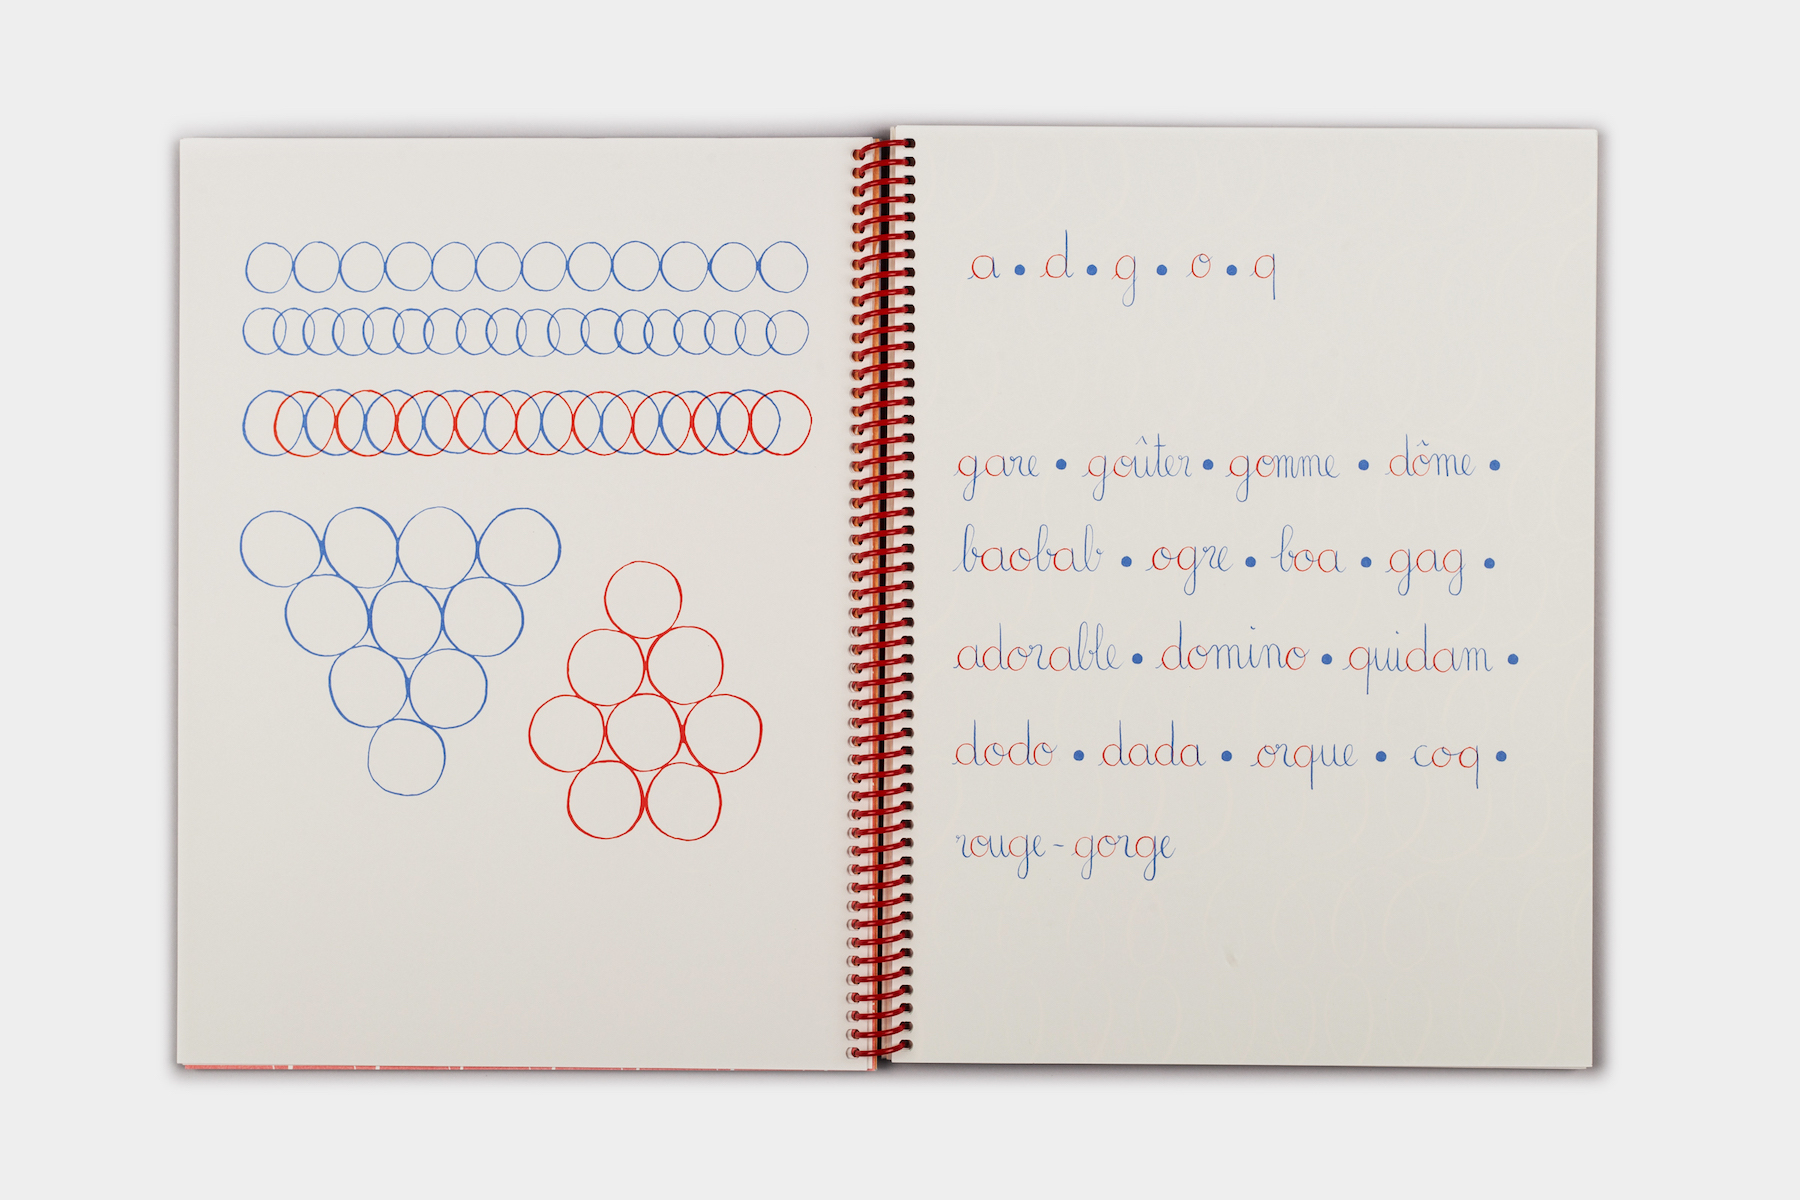 a • d • g • o • q
gare • goûter • gomme • dôme •
baobab • ogre • boa • gag •
adorable • domino • quidam •
dodo • dada • orque • coq •
rouge-gorge